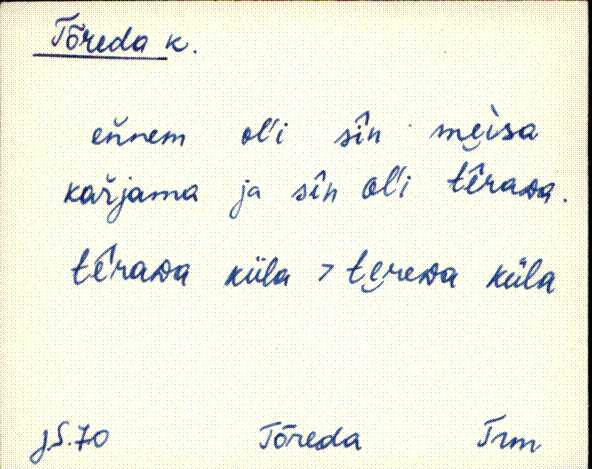 Tõreda k.
eňnem ol'i sîn mḙìsa
kařjama ja sîn ol'i tê̮raᴅa.
tê̮raᴅa küla > tḙreᴅa küla
J.S.70 Tõreda Trm